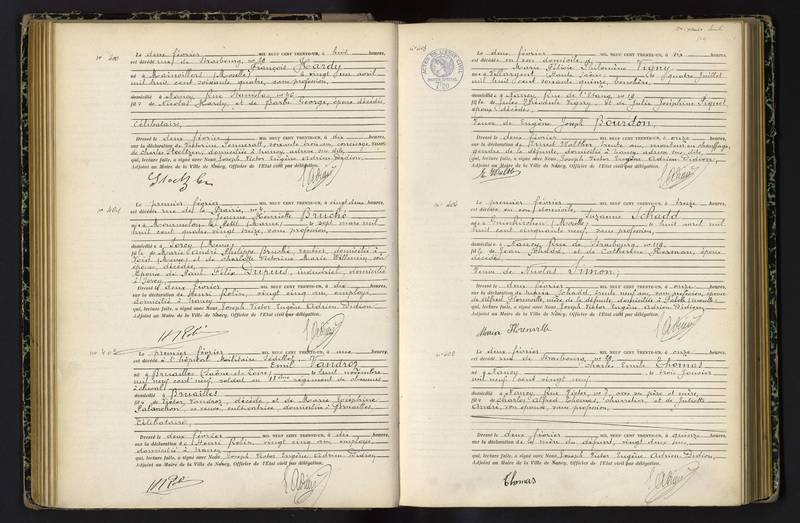 N° 400
Le deux février MIL NEUF CENT TRENTE-UN, à huit heures,
est décédé rue de Strasbourg, n° 29
François Hardy
né à Mainvillers (Moselle) le vingt un avril
mil huit cent soixante quatre, sans profession,
domicilié à Nancy, rue Stanislas, n° 76
fils de Nicolas Hardy, et de Barbe George, époux décédés
Célibataire,
Dressé le deux février MIL NEUF CENT TRENTE-UN, à dix heures,
sur la déclaration de Victorine soixante trois ans, concierge,
de Charles domiciliée à Nancy
qui, lecture faite, a signé avec Nous, Joseph Victor Eugène Adrien Didion,
Adjoint au Maire de la Ville de Nancy, Officier de l'Etat civil par délégation.
N° 401
Le premier février MIL NEUF CENT TRENTE-UN, à vingt deux heures,
est décédée rue de la Prairie, n°
Jeanne Henriette Bruché
née à Mourmelon le Petit (Marne) le sept mars mil
huit cent quatre vingt onze, sans profession,
domiciliée à Sorcy (Meuse)
fille de Marie André Philippe Bruché, rentier, domicilié à
Void (Meuse) et de Charlotte Victorine Marie Villemin, son
épouse, décédée,
Epouse de Paul Félix Dupuis, industriel, domicilié
à Sorcy,
Dressé le deux février MIL NEUF CENT TRENTE-UN, à dix heures,
sur la déclaration de Henri Rolin, vingt cinq ans, employé,
domicilié à Nancy
qui, lecture faite, a signé avec Nous, Joseph Victor Eugène Adrien Didion
Adjoint au Maire de la Ville de Nancy, Officier de l'Etat civil par délégation.
Le premier février MIL NEUF CENT TRENTE-UN, à une heures,
est décédé à l'hôpital Militaire Sédillot
Emil Vandroz
né à Bruailles (Saône et Loire) le huit novembre
mil neuf cent neuf, soldat au régiment de chasseurs
à cheval
domicilié à Bruailles
fils de Victor Vandroz, décédé, et de Marie Joséphine
sa veuve, cultivatrice, domiciliée à Bruailles
Célibataire,
Dressé le deux février MIL NEUF CENT TRENTE-UN, à dix heures,
sur la déclaration de Henri Rolin, vingt cinq ans, employé
domicilié à Nancy
qui, lecture faite, a signé avec Nous, Joseph Victor Eugène Adrien Didion,
Adjoint au Maire de la Ville de Nancy, Officier de l'Etat civil par délégation.
Le deux février MIL NEUF CENT TRENTE-UN, à six heures,
est décédée en son domicile,
Marie Félicie Philomène Vigny
née à Villargent (Haute Saône) le quatre juillet
mil huit cent soixante quinze,
domiciliée à Nancy, rue de l'Etang n° 19
fille de Jules Vigny, et de Julie Joséphine
époux décédés,
Veuve de Eugène Joseph Bourdon,
Dressé le deux février MIL NEUF CENT TRENTE-UN, à onze heures,
sur la déclaration de Ernest Walther, trente ans, monteur en chauffage,
gendre de la défunte, domicilié à Nancy
qui, lecture faite, a signé avec Nous, Joseph Victor Eugène Adrien Didion,
Adjoint au Maire de la Ville de Nancy, Officier de l'Etat civil par délégation.
N° 404
Le premier février MIL NEUF CENT TRENTE-UN, à treize heures,
est décédée en son domicile,
Suzanne Schadd
née à (Moselle) le huit avril mil
huit cent cinquante neuf, sans profession,
domiciliée à Nancy, rue de Strasbourg, n° 119,
fille de Jean Schadd, et de Catherine Herman, époux
décédés
Veuve de Nicolas Simon,
Dressé le deux février MIL NEUF CENT TRENTE-UN, à onze heures,
sur la déclaration de Maria Schadd, trente neuf ans, sans profession, épouse
de Alfred nièce de la défunte, domiciliée à
qui, lecture faite, a signé avec Nous, Joseph Victor Eugène Adrien Didion,
Adjoint au Maire de la Ville de Nancy, Officier de l'Etat civil par délégation.
Maria
Le deux février MIL NEUF CENT TRENTE-UN, à onze heures,
est décédé rue de Strasbourg, n° 29
Charles Emile Thomas
né à Nancy le trois janvier
mil neuf cent vingt neuf
domicilié à Nancy, rue Victor, n° 7, avec ses père et mère,
fils de Charles Alfred Thomas, charretier, et de Juliette
André, son épouse, sans profession,
Dressé le deux février MIL NEUF CENT TRENTE-UN, à quinze heures,
sur la déclaration de la du défunt, vingt deux ans,
qui, lecture faite, a signé avec Nous, Joseph Victor Eugène Adrien Didion,
Adjoint au Maire de la Ville de Nancy, Officier de l'Etat civil par délégation.
Thomas